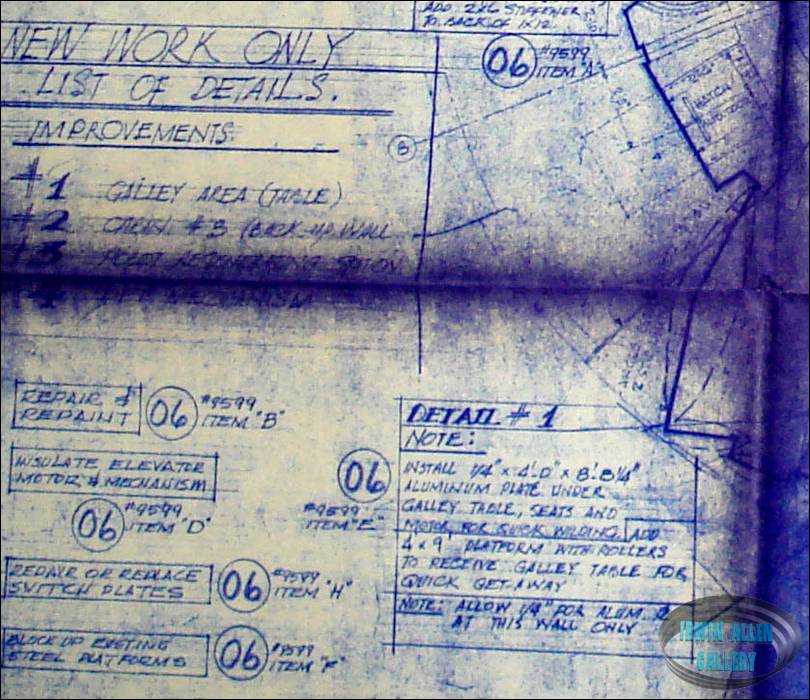 ADD 2X6 STIFFENER
TO BACK OF 1X12
06 #9599
ITEM "A"
NEW WORK ONLY
LIST OF DETAILS.
IMPROVEMENTS:
#1 GALLEY AREA (TABLE)
#2 CABIN #3 (BACK-UP WALL
#3
MECHANISM
6
REPAIR &
REPAINT
06 #9599
ITEM "B"
INSULATE ELEVATOR
MOTOR & MECHANISM
06 #9599
ITEM "D"
REPAIR OR REPLACE
SWITCH PLATES
06 #9599
ITEM "H"
BLOCK UP EXISTING
STEEL PLATFORMS
06 #9599
ITEM "F"
06
#9599
ITEM "E"
DETAIL #1
NOTE:
INSTALL 1/4" x 4'-0" x 8'-8 1/4"
ALUMINUM PLATE UNDER
GALLEY TABLE, SEATS AND
MOTOR FOR QUICK WILDING. ADD
4 x 9 PLATFORM WITH ROLLERS
TO RECEIVE GALLEY TABLE FOR
QUICK GET-AWAY
NOTE: ALLOW 1/4" FOR ALUM.
AT THIS WALL ONLY
IRWIN ALLEN
GALLERY